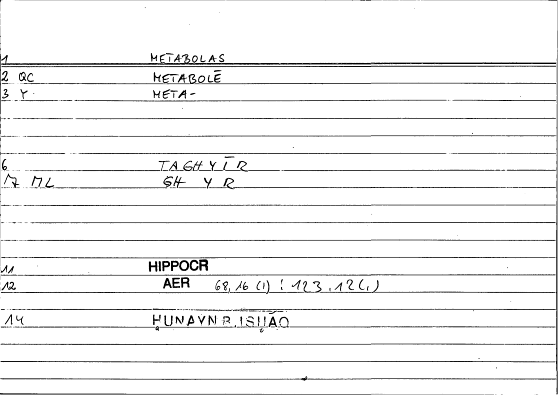 1 METABOLAS
2 QC METABOLĒ
3 Y META-
6 TAGHYĪR
17 ML GH Y R
11 HIPPOCR
12 AER 68,16 (1) : 123,12 (1)
14 ḤUNAYN B. ISḤĀQ